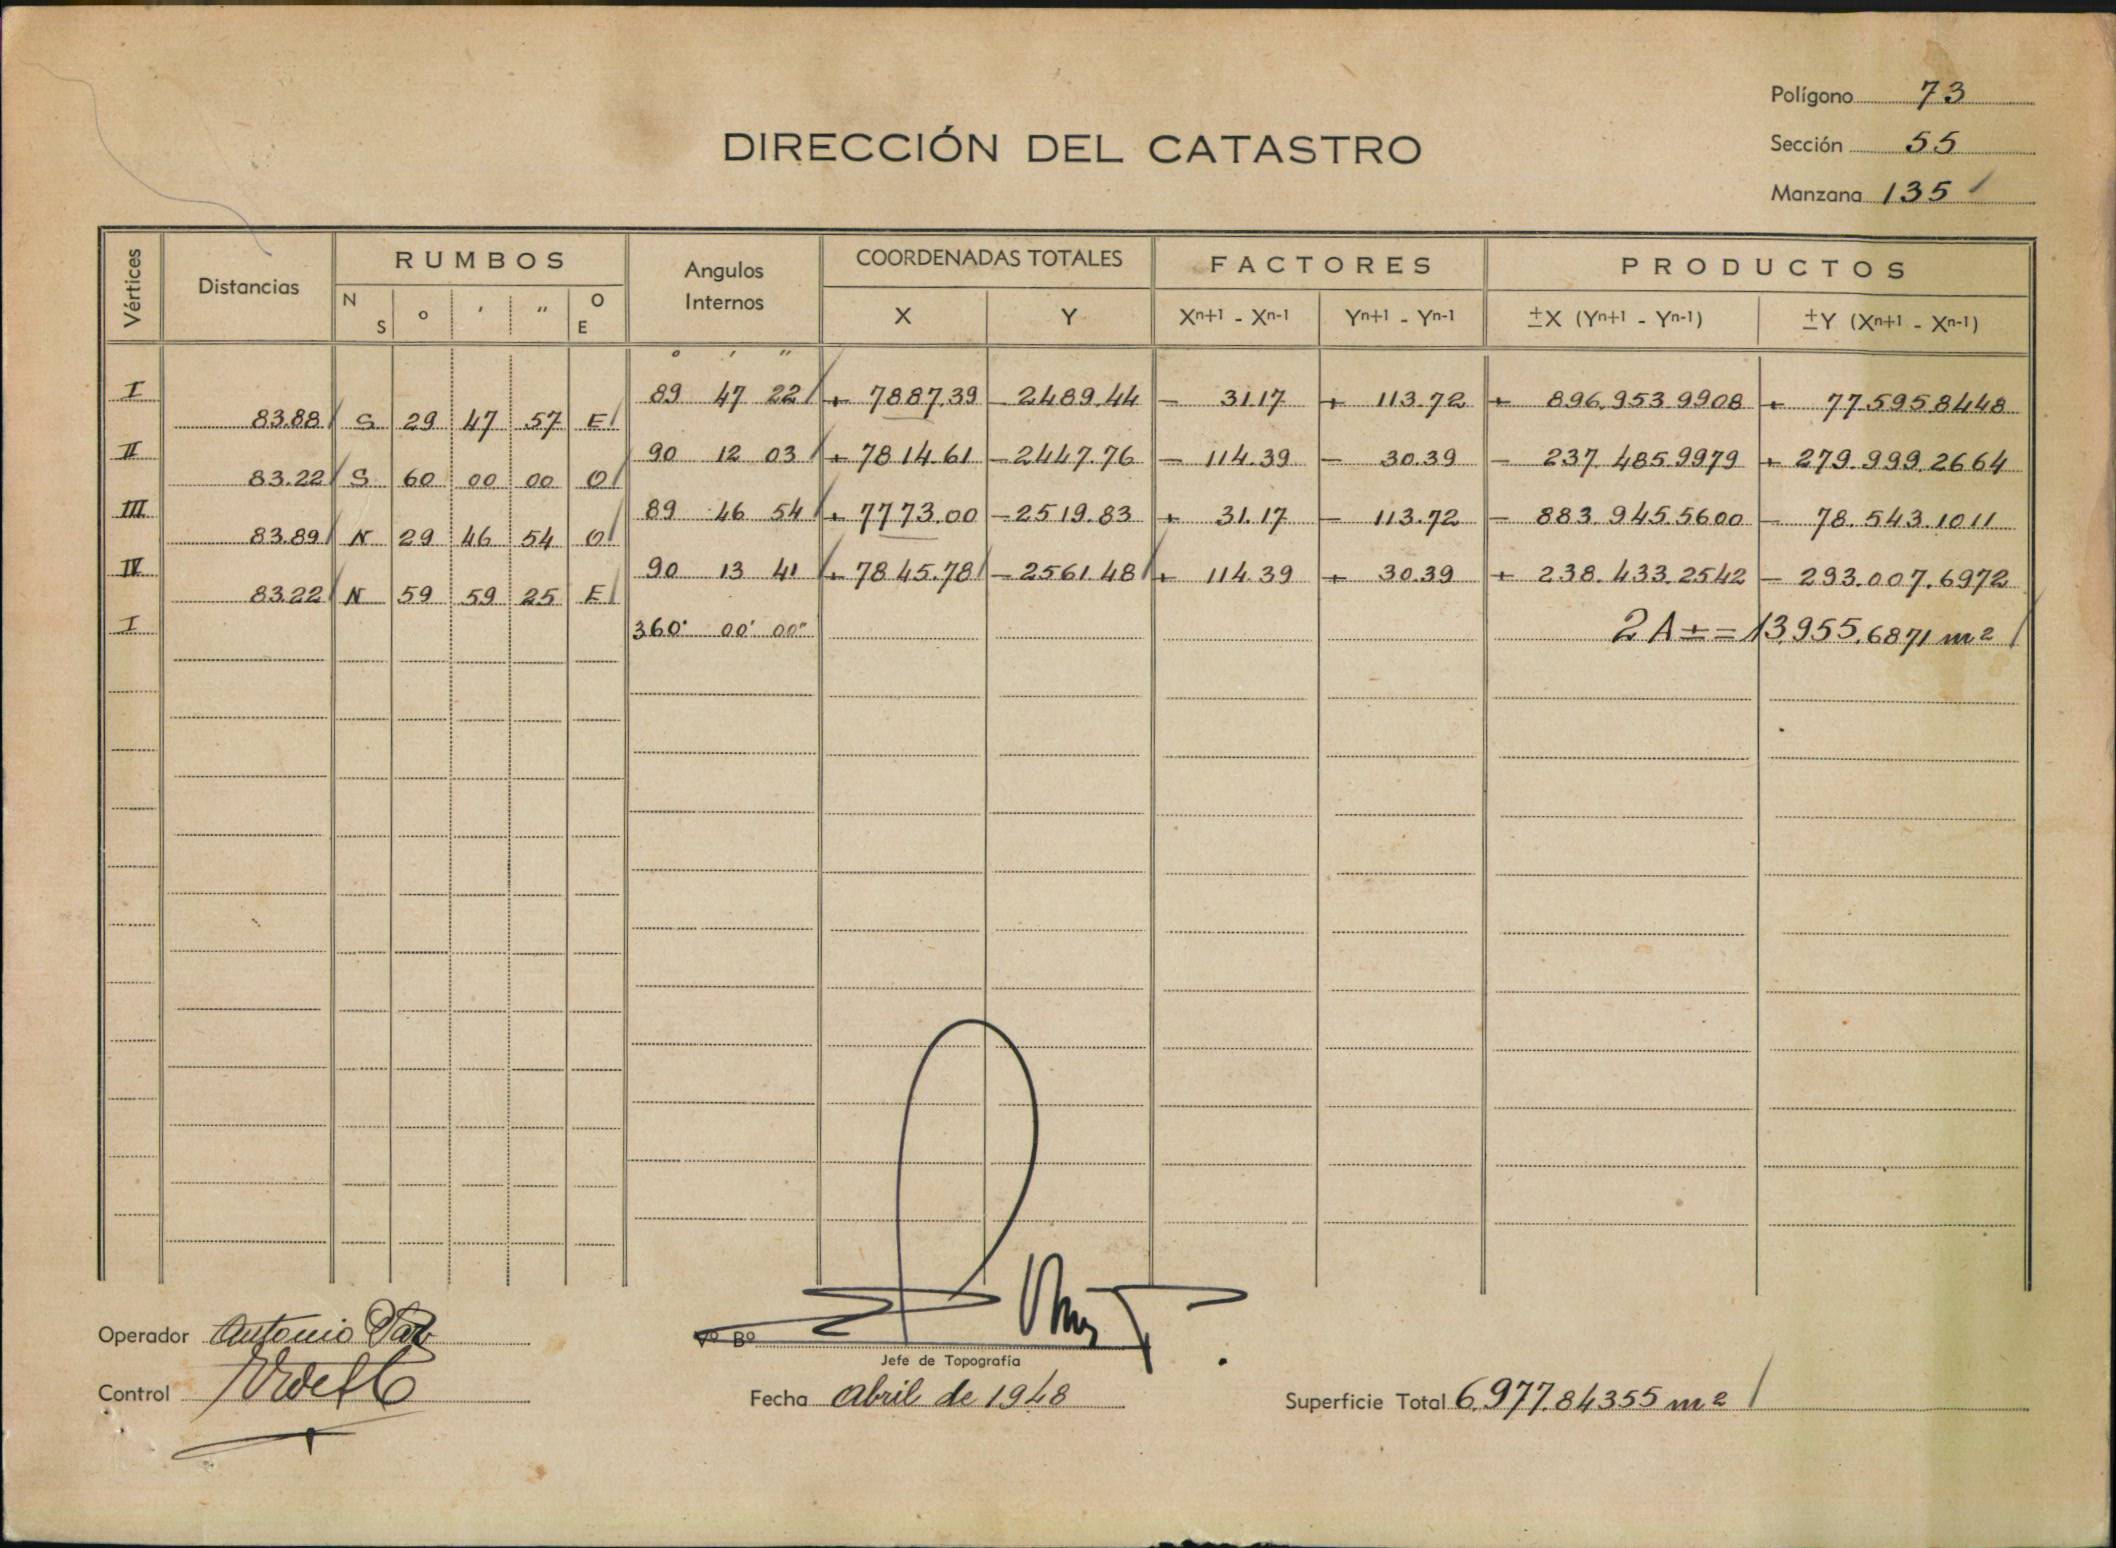 Polígono 73
DIRECCIÓN DEL CATASTRO
Sección 55
Manzana 135
Vértices Distancias RUMBOS Angulos Internos COORDENADAS TOTALES FACTORES PRODUCTOS
N S o ' " O E X Y Xn+1 - Xn-1 Yn+1 - Yn-1 ±X (Yn+1 - Yn-1) ±Y (Xn+1 - Xn-1)
° ' "
I 89 47 22 + 7887.39 - 2489.44 - 31.17 + 113.72 + 896.953.9908 + 77.595.8448
83.88 S 29 47 57 E
II 90 12 03 + 7814.61 - 2447.76 - 114.39 - 30.39 - 237.485.9979 + 279.999.2664
83.22 S 60 00 00 O
III 89 46 54 + 7773.00 - 2519.83 + 31.17 - 113.72 - 883.945.5600 - 78.543.1011
83.89 N 29 46 54 O
IV 90 13 41 + 7845.78 - 2561.48 + 114.39 + 30.39 + 238.433.2542 - 293.007.6972
83.22 N 59 59 25 E
I 360° 00' 00" 2A ± = 13.955.6871 m2
Operador Antonio Paz
Vº Bº
Jefe de Topografía
Control
Fecha abril de 1948
Superficie Total 6.977.84355 m2